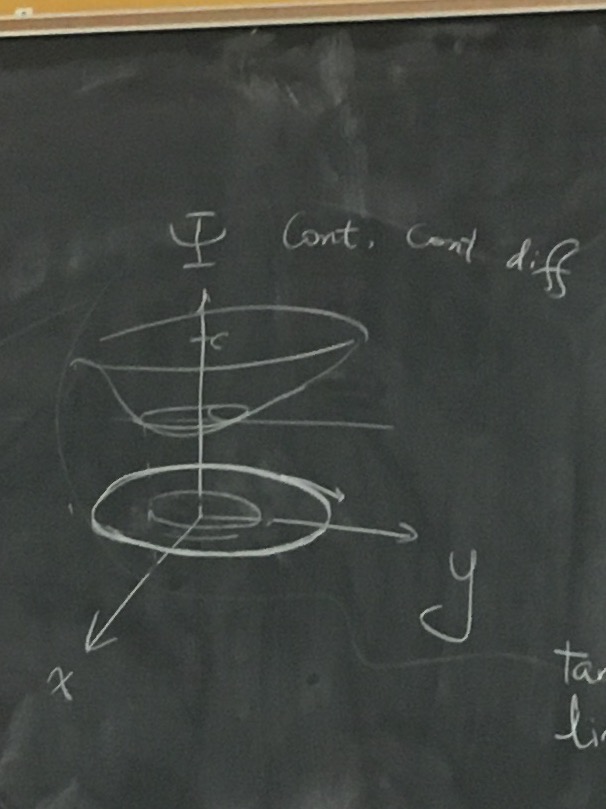 Ψ Cont. Cont diff
c
y
x
tan
lin